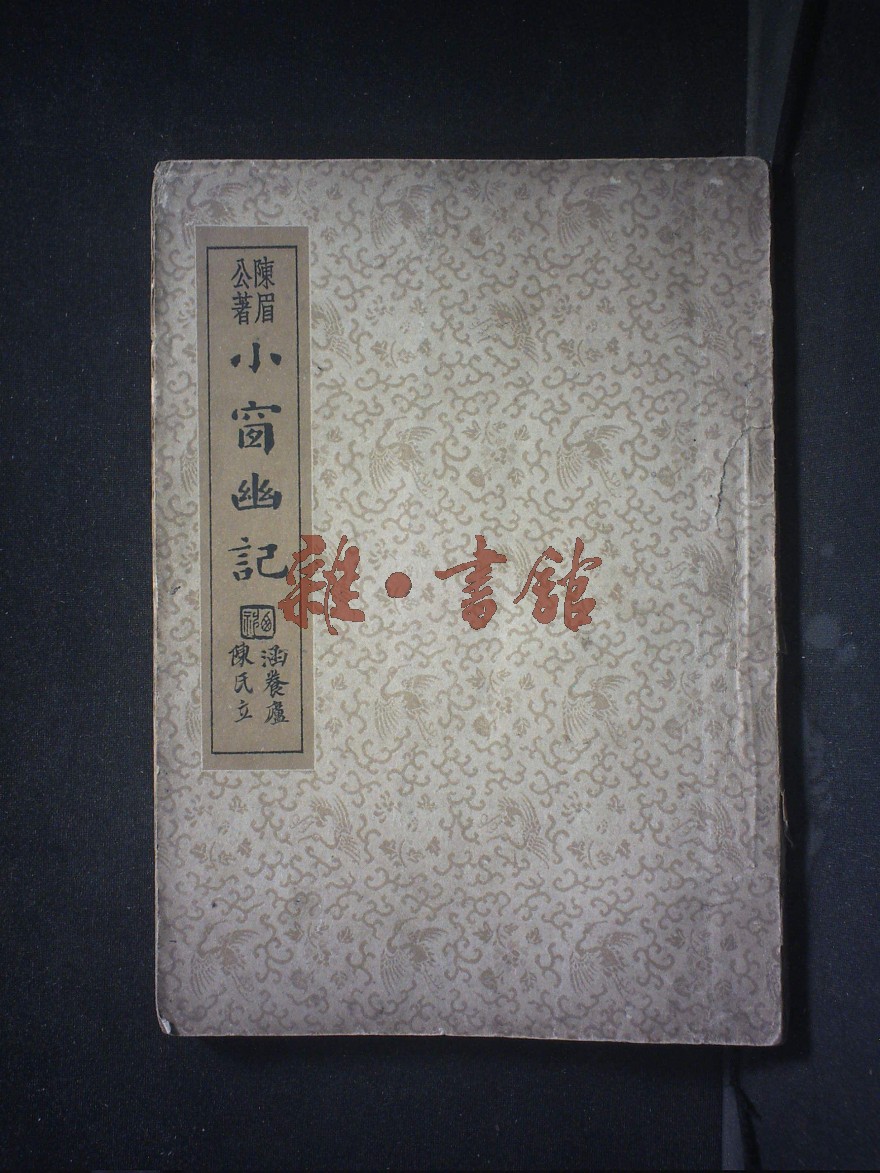 陳眉
公著
小窗幽記
涵養廬
陳氏立
雜·書舘